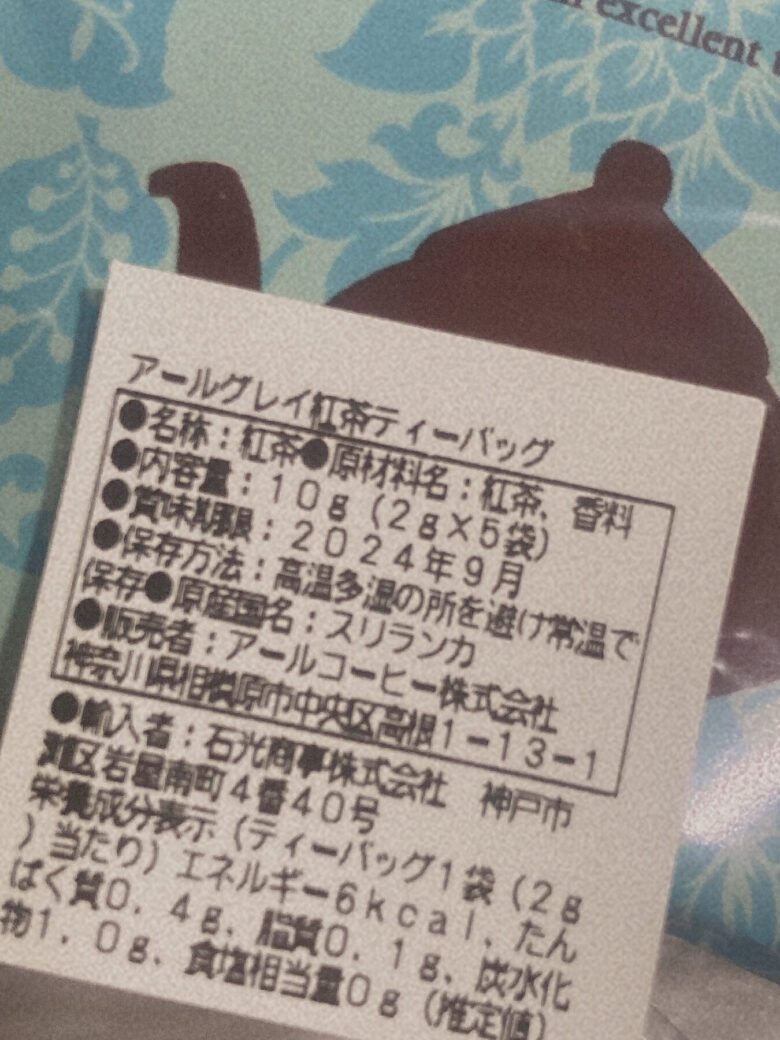 excellent
アールグレイ紅茶ティーバッグ
●名称：紅茶●原材料名：紅茶、香料
●内容量：10g（2g×5袋）
●賞味期限：2024年9月
●保存方法：高温多湿の所を避け常温で
保存●原産国名：スリランカ
●販売者：アールコーヒー株式会社
神奈川県相模原市中央区高根1－13－1
●輸入者：石光商事株式会社　神戸市
灘区岩屋南町4番40号
栄養成分表示（ティーバッグ1袋（2g
）当たり）エネルギー6kcal、たん
ぱく質0．4g、脂質0．1g、炭水化
物1．0g、食塩相当量0g（推定値）